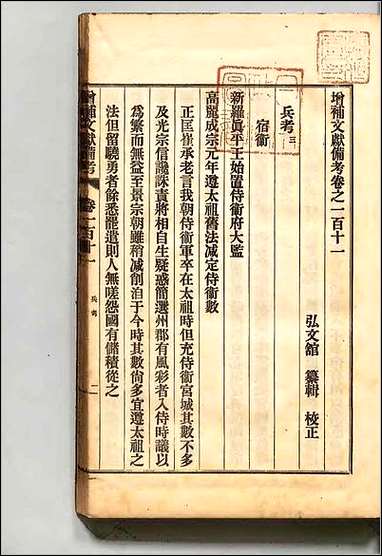 增補文獻備考卷之一百十一
弘文館 纂輯 校正
兵考三
宿衛
新羅眞平王始置侍衛府大監
高麗成宗元年遵太祖舊法减定侍衛數
正匡崔承老言我朝侍衛軍卒在太祖時但充侍衛宮城其數不多
及光宗信讒誅責將相自生疑惑簡選州郡有風彩者入侍時議以
爲繁而無益至景宗朝雖稍减削洎于今時其數尙多宜遵太祖之
法但留驍勇者餘悉罷遣則人無嗟怨國有儲積從之
增補文獻備考 卷一百十一 兵考 一